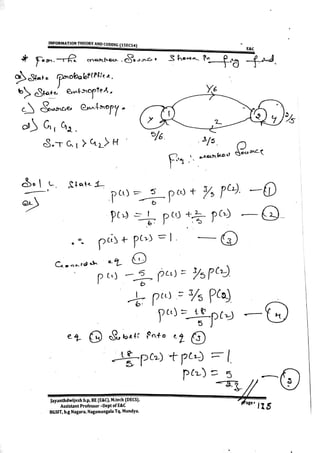 INFORMATION THEORY AND CODING (15EC54)
E&C
* For The markov Source Shown in fig find.
a) State probabilities.
b) State entropies.
c) Source entropy.
d) G₁, G₂.
S.T G₁ > G₂ > H
1/6
1
2
5/6
3/5
2/5
Fig : markov Source
Sol: State 1
a)
p(1) = 5/6 p(1) + 3/5 p(2). —①
p(2) = 1/6 p(1) + 2/5 p(2) —②
∴ p(1) + p(2) = 1. —③
Consider eq ①
p(1) - 5/6 p(1) = 3/5 p(2)
1/6 p(1) = 3/5 p(2)
p(1) = 18/5 p(2) —④
eq ④ Subst into eq ③
18/5 p(2) + p(2) = 1.
p(2) = 5/23 —⑤
Jayanthdwijesh h.p, BE (E&C), M.tech (DECS).
Assistant Professor -Dept of E&C
BGSIT, b.g Nagara, Nagamangala Tq, Mandya.
Page 125